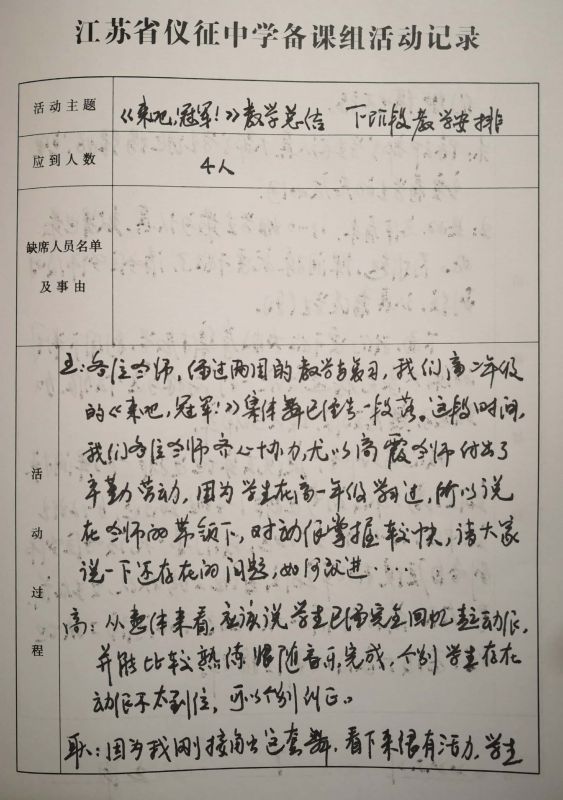 江苏省仪征中学备课组活动记录
活动主题 《来吧，冠军！》教学总结 下阶段教学安排
应到人数 4人
缺席人员名单
及事由
活动过程
王：各位老师，经过两周的教学与复习，我们高二年级
的《来吧，冠军！》集体舞已经告一段落。这段时间，
我们各位老师齐心协力，尤以高霞老师付出了
辛勤劳动，因为学生在高一年级学过，所以说
在老师的带领下，对动作掌握较快，请大家
说一下还存在的问题，如何改进……
高：从整体来看，应该说学生已经完全回忆起动作，
并能比较熟练跟随音乐完成，个别学生存在
动作不太到位，可以个别纠正。
耿：因为我刚接触这套舞，看下来很有活力，学生